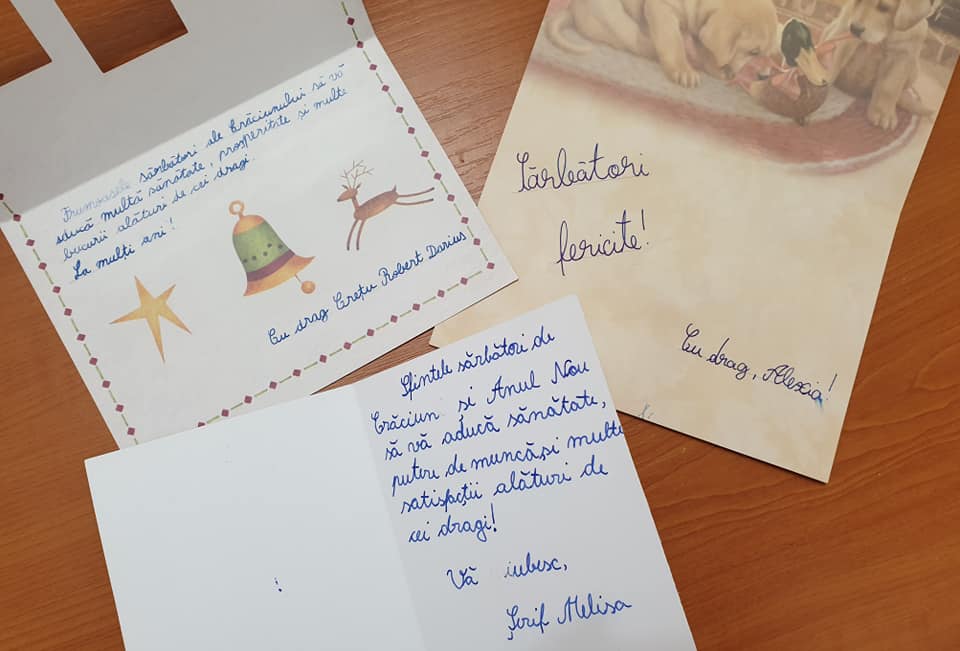 Frumoasele sărbători ale Crăciunului să vă
aducă multă sănătate, prosperitate și multe
bucurii alături de cei dragi.
La mulți ani!
Cu drag Crețu Robert Darius
Sărbători
fericite!
Cu drag, Alexia!
Sfintele sărbători de
Crăciun și Anul Nou
să vă aducă sănătate,
putere de muncă și multe
satisfcții alături de
cei dragi!
Vă iubesc,
Șerif Melisa